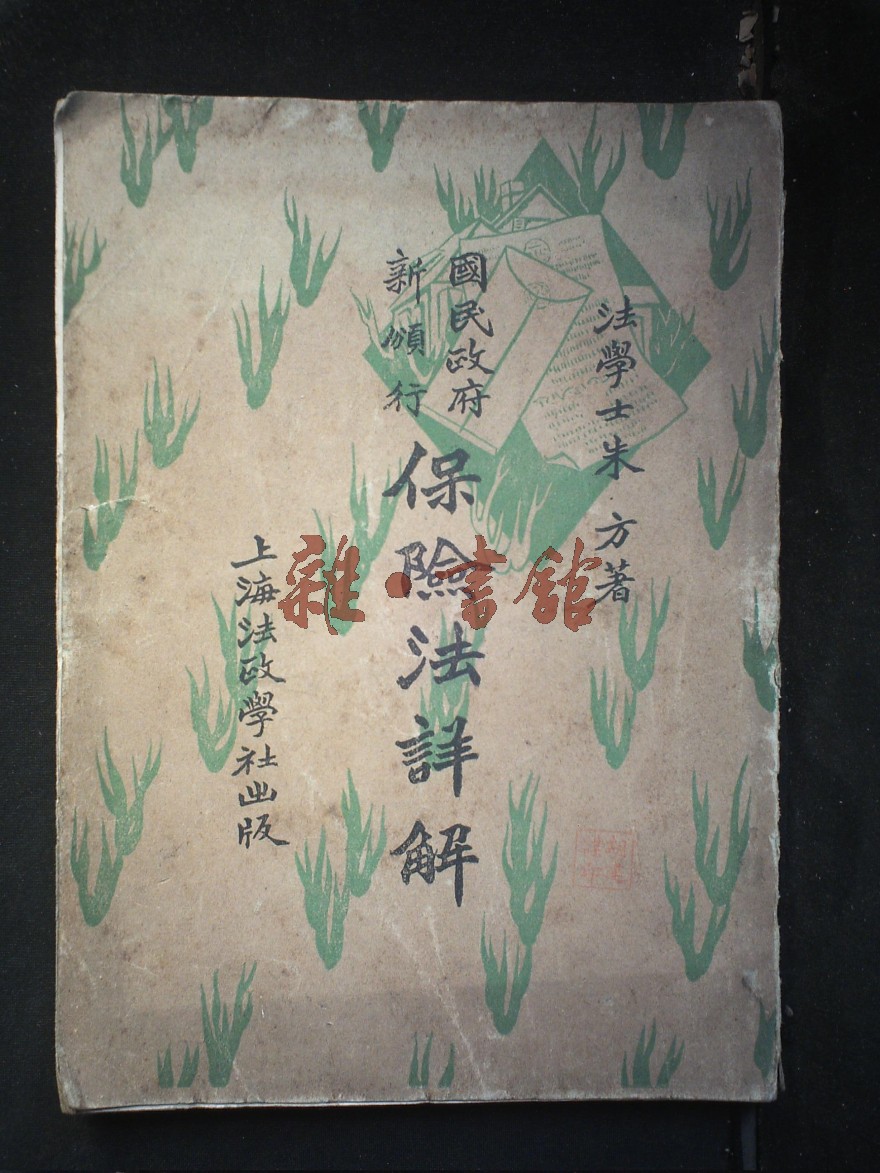 法學士朱方著
國民政府
新頒行
保險法詳解
上海法政學社出版
雜·書館